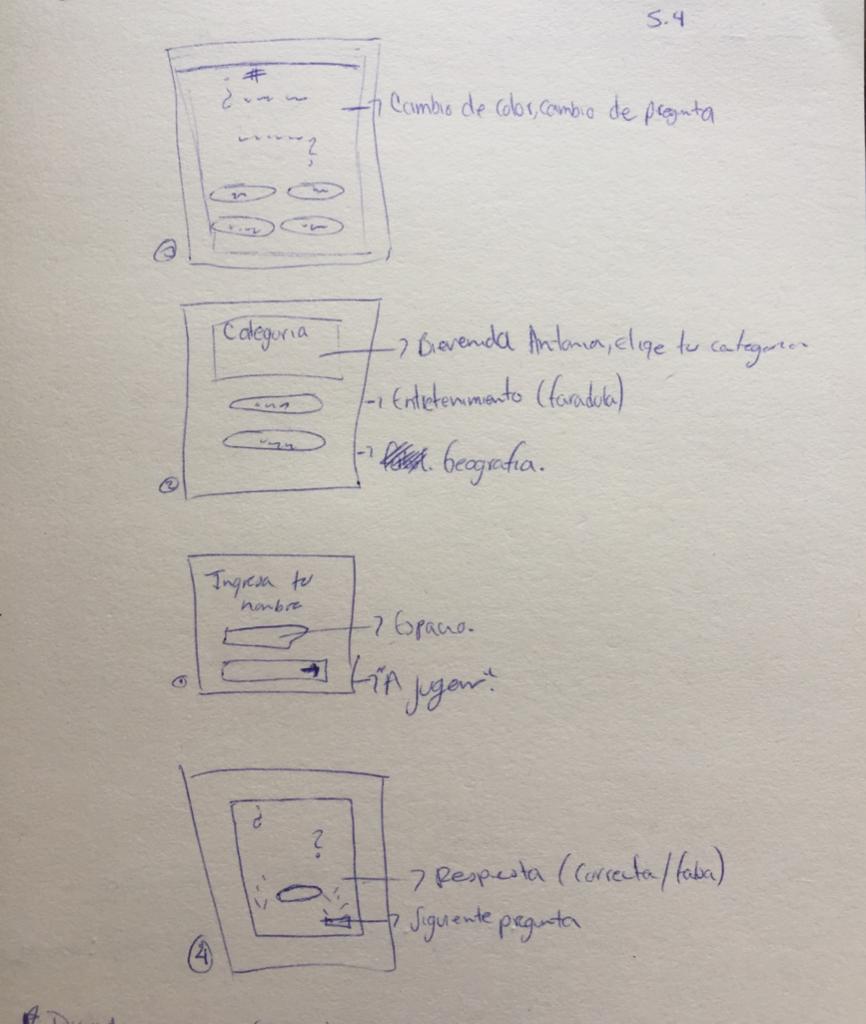 5.4
#
¿
?
Cambio de color, cambio de pregunta
Categoria
Bievenida Antonia, elige tu categoria
Entretenimiento (faradula)
2
Geografia.
Ingresa tu
nombre
Espacio.
1
"A jugar".
¿
?
Respuesta (Correcta/falsa)
Siguiente pregunta
4